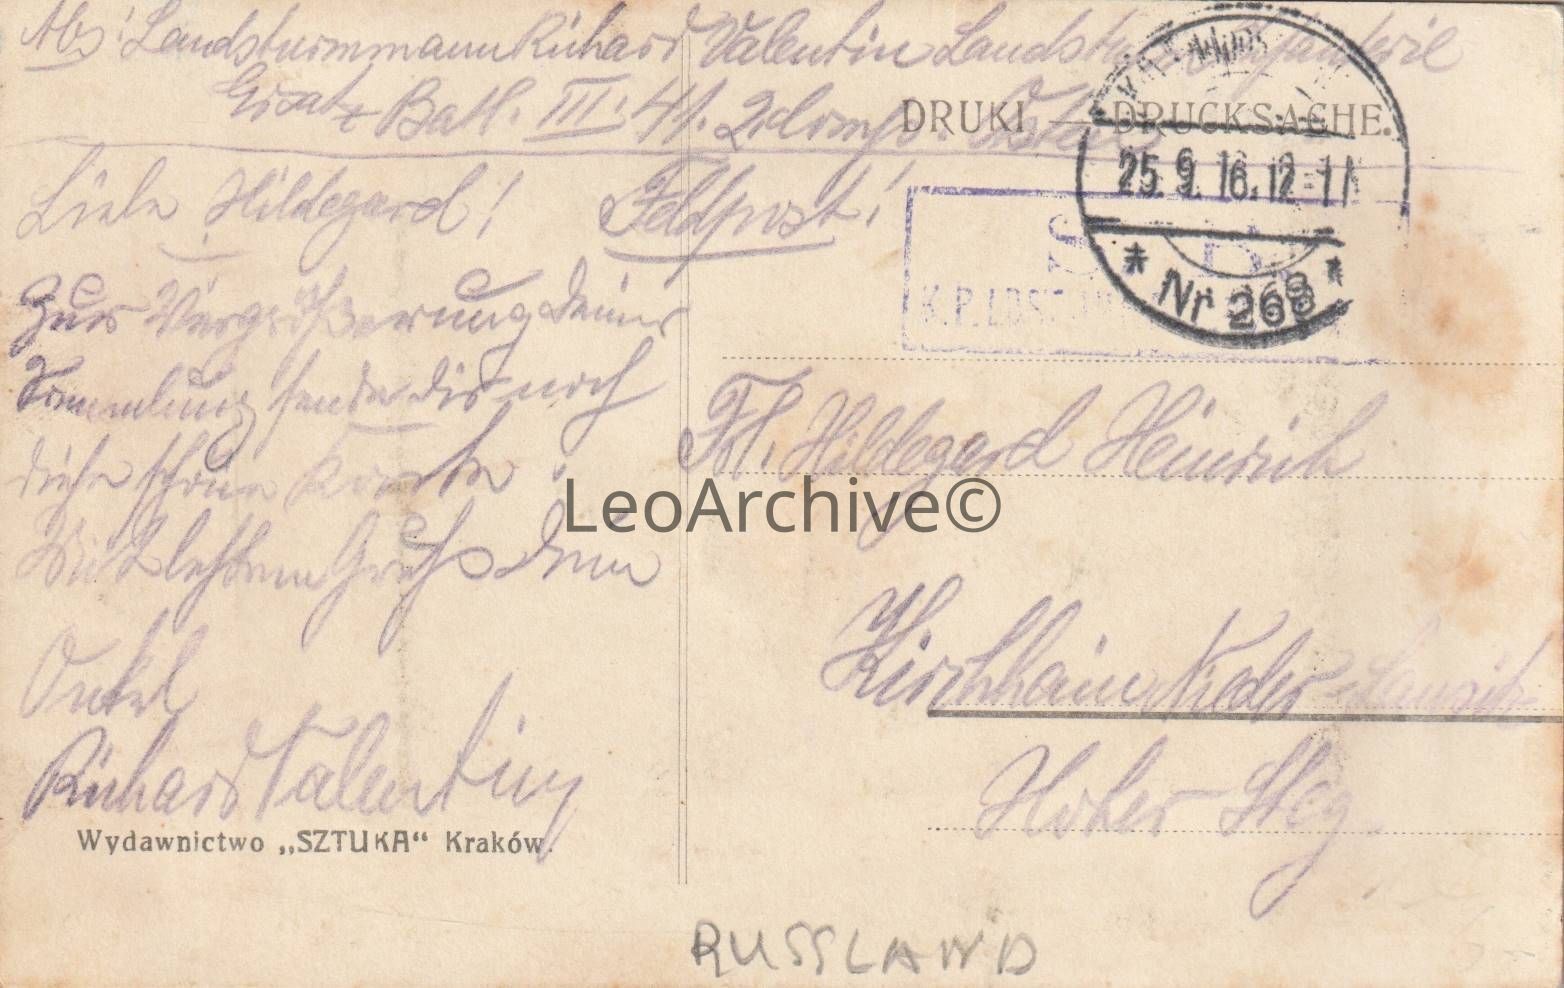 Abs: Landsturmmann Richard Valentin Landst. Infanterie
Ersatz Batl. III. 41. 2. Komp.
DRUKI — DRUCKSACHE.
25.9.16.12-1N
* Nr 268 *
S. B.
K.P.
Liebe Hildegard!
Feldpost!
Zur Vergrößerung deiner
Sammlung sende dir noch
diese schöne Karte
Mit Gruß Dein
Onkel
Richard Valentin
Frl. Hildegard Heinrich
Kirchhain Nieder-Lausitz
Hoher Steg
Wydawnictwo „SZTUKA“ Kraków.
RUSSLAND
LeoArchive©